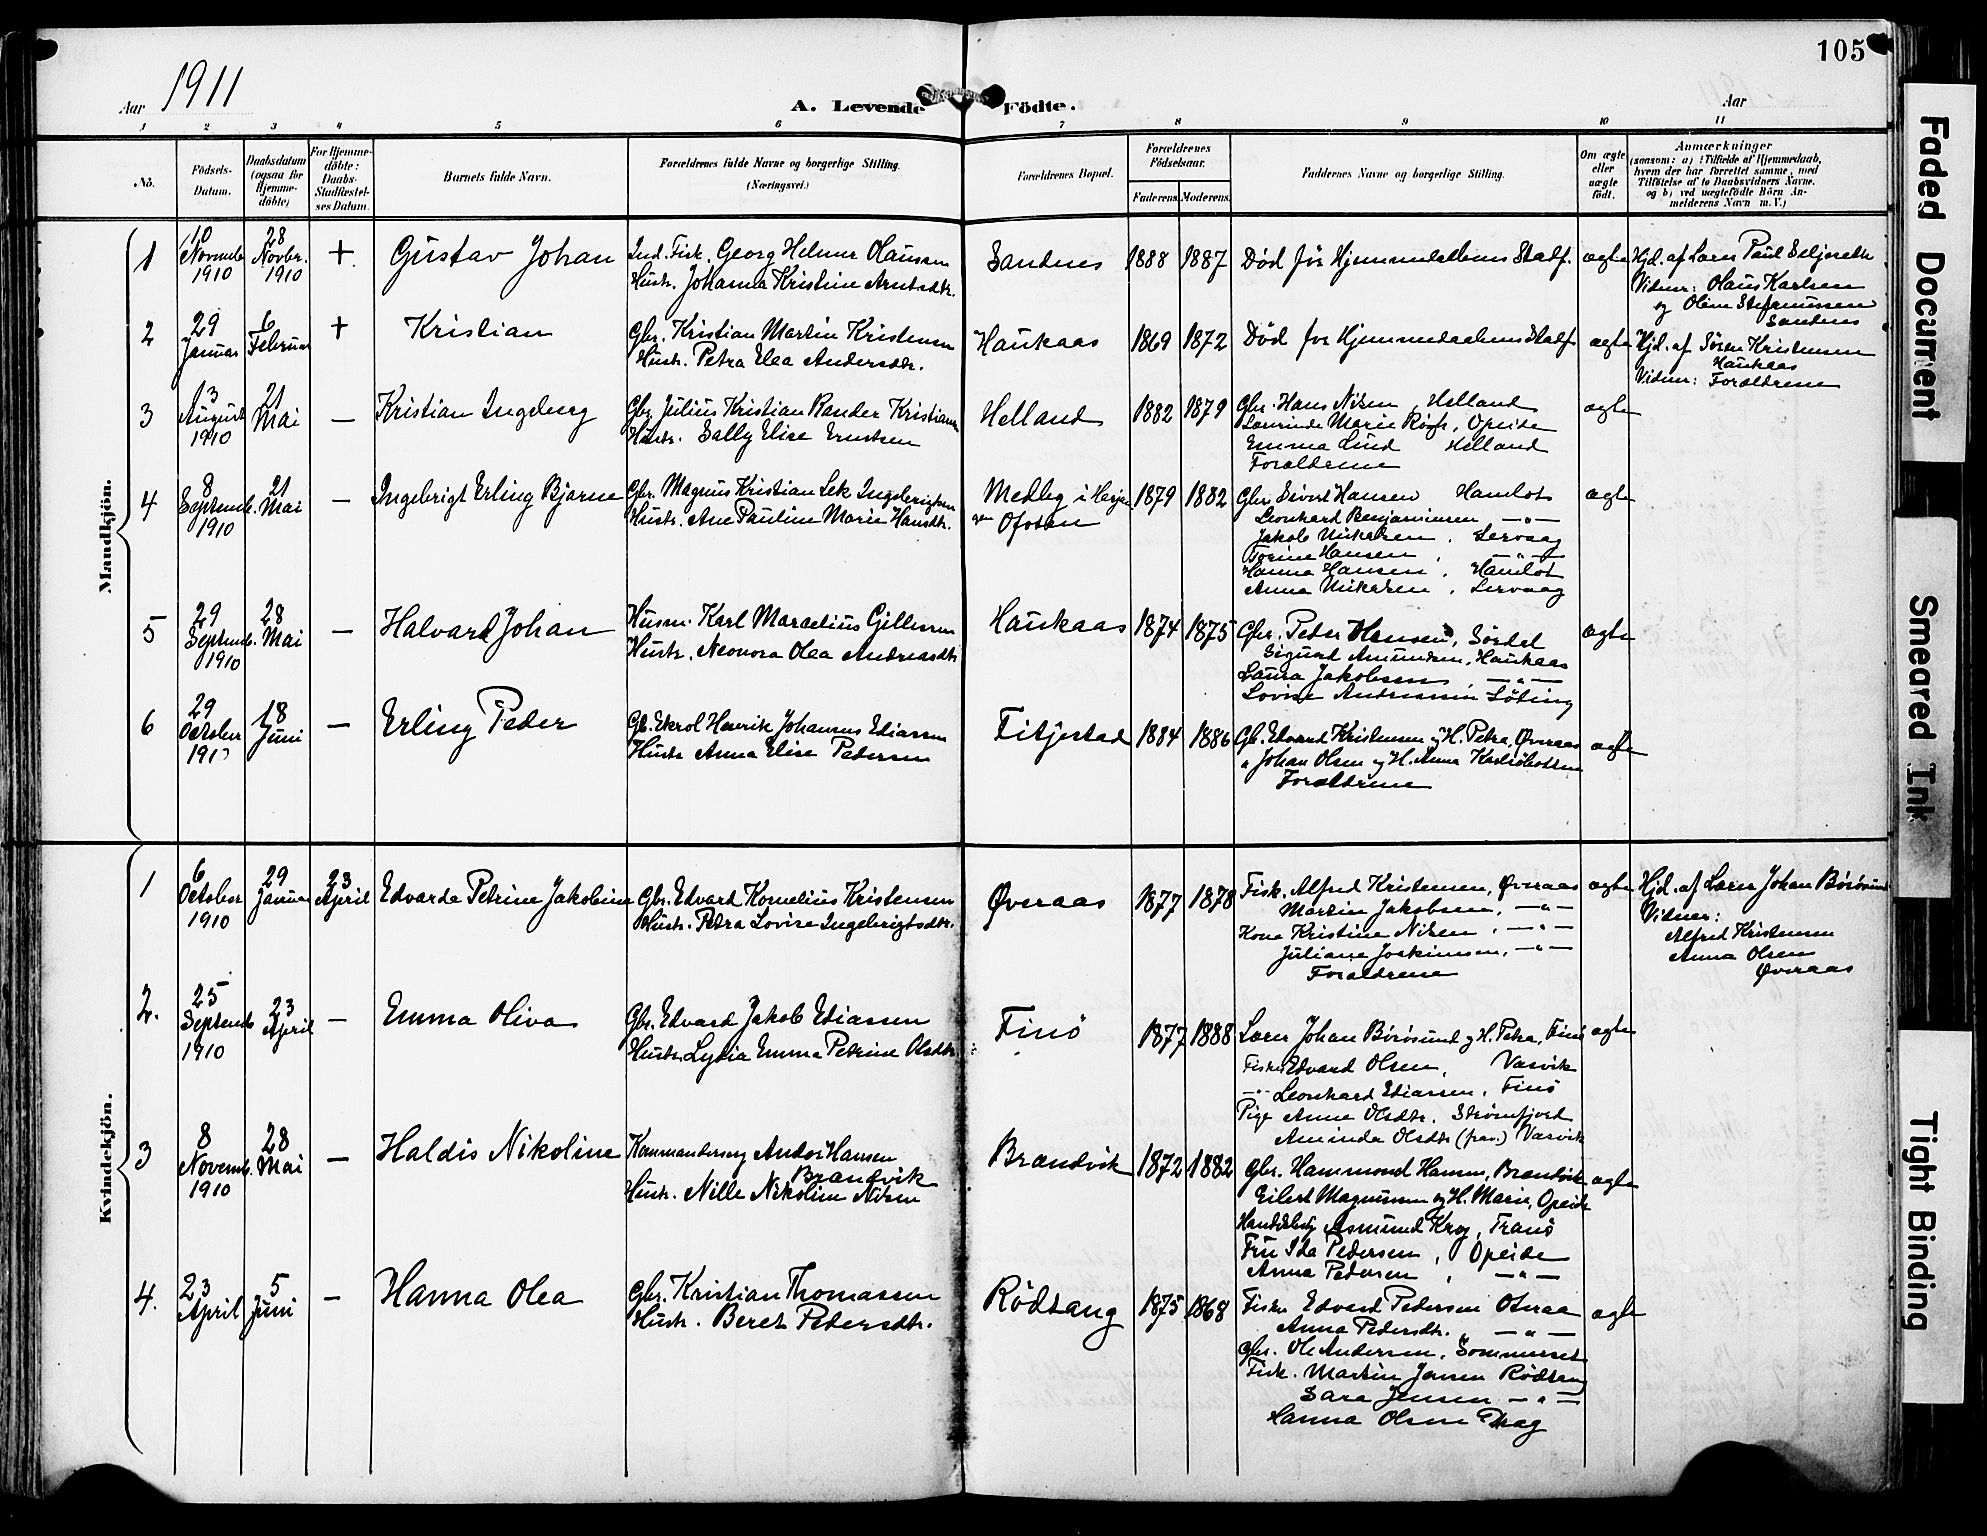 105
Aar 1911
A. Levende Födte.
Aar
1 2 3 4 5 6 7 8 9 10 11
No.
Födsels-Datum.
Daabsdatum (ogsaa for Hjemme-döbte)
For Hjemme-döbte: Daabs-Stadfæstel-ses Datum.
Barnets fulde Navn.
Forældrenes fulde Navne og borgerlige Stilling. (Næringsvei.)
Forældrenes Bopæl.
Forældrenes Födselsaar.
Faderens Moderens
Faddernes Navne og borgerlige Stilling.
Om ægte eller uægte födt.
Anmærkninger
(saasom: a) i Tilfælde af Hjemmedaab, hvem der har forrettet samme, med Tilföielse af to Daabsvidners Navne, og b) ved uægtefödte Börn An-melderens Navn m. V.)
Mandkjön.
1
10 Novemb. 1910
28 Novbr. 1910
+
Gustav Johan
Ind. Fisk. Georg Helmer Olausen
Hustr. Johanna Kristine Arntsdtr.
Sandnes
1888 1887
Død før Hjemmedaabens Stadf.
ægte
Hjd. af Lærer Paul Seljeseth
Vidner: Olaus Karlsen
og Oline Stefanussen
Sandnes
2
29 Januar
6 Februar
+
Kristian
Gbr. Kristian Martin Kristensen
Hustr. Petra Elea Andersdtr.
Haukaas
1869 1872
Død for Hjemmedaabens Stadf.
ægte
Hjd. af Søren Kristensen
Haukaas
Vidner: Forældrene
3
13 August 1910
21 Mai
—
Kristian Ingeberg
Gbr. Julius Kristian Rander Kristiansen
Hustr. Sally Elise Erntsen
Helland
1882 1879
Gbr. Hans Nilsen, Helland
Marie Opeide
Emma Lind Helland
Forældrene
ægte
4
8 Septemb. 1910
21 Mai
—
Ingebrigt Erling Bjarne
Gbr. Magnus Kristian Lek Ingebrigtsen
Hustr. Ane Pauline Marie Hansdtr.
Medby i
Ofoten
1879 1882
Gbr. Sivert Hansen Hamlot
Leonhard Benjaminsen —"—
Jakob Mikelsen, Lervaag
Torine Hansen, —"—
Hanna Hansen, Hamlot
Anna Mikelsen, Lervaag
ægte
5
29 Septemb. 1910
28 Mai
—
Halvard Johan
Husm. Karl Marcelius Gillesen
Hustr. Neonora Olea Andreasdtr.
Haukaas
1874 1875
Gbr. Peder Hansen, Sördal
Sigurd Amundsen, Haukaas
Laura Jakobsen, —"—
Lovise Andreassen Löting
ægte
6
29 October 1910
18 Juni
—
Erling Peder
Gb. Ekrol Henrik Johannes Ediassen
Hustr. Anna Elise Pedersen
Fitjestad
1884 1886
Gb. Edvard Kristensen og H. Petra, Øveraas
" Johan Olsen og H. Anna Karlsöbotten
Forældrene
ægte
Kvindekjön.
1
6 October 1910
29 Januar
23 April
Edvarda Petrine Jakobine
Gbr. Edvard Kornelius Kristensen
Hustr. Petra Lovise Ingebrigtsdtr.
Øveraas
1877 1878
Fisk. Alfred Kristensen, Øveraas
Martin Jakobsen, —"—
Kone Kristine Nilsen, —"—
Juliane Joakimsen, —"—
Forældrene
ægte
Hjd. af Lærer Johan Börösund
Vidner:
Alfred Kristensen
Anna Olsen
Øveraas
2.
25 Septemb. 1910
23 April
—
Emma Oliva
Gbr. Edvard Jakob Ediassen
Hustr. Lydia Emma Petrine Olsdtr.
Finö
1877 1888
Lærer Johan Börösund og H. Petra, Finö
Fisker Edvard Olsen, Vasvik
—"— Leonhard Ediassen, Finö
Pige Anna Olsdtr. Strömfjord
Aminda Olsdtr (frav.) Vasvik
ægte
3
8 Novemb. 1910
28 Mai
—
Haldis Nikoline
Kommandersrg Andor Hansen
Brandvik
Hustr. Nille Nikoline Nilsen
Brandvik
1872 1882
Gbr. Hammond Hansen, Brandvik
Eilert Magnussen og H. Marie, Opeide
Handelsbetj. Asmund Krog, Tranö
Fru Ida Pedersen, Opeide
Anna Pedersen, —"—
ægte
4.
23 April
5 Juni
—
Hanna Olea
Gbr. Kristian Thomassen
Hustr. Beret Pedersdtr.
Rödsang
1875 1868
Fisker Edvard Pedersen Oteraa
Anna Pedersdtr. —"—
Gbr. Ole Andersen, Sommerset
Fisk. Martin Jensen Rödsang
Sara Jensen —"—
Hanna Olsen Drag
ægte
Faded Document
Smeared Ink
Tight Binding